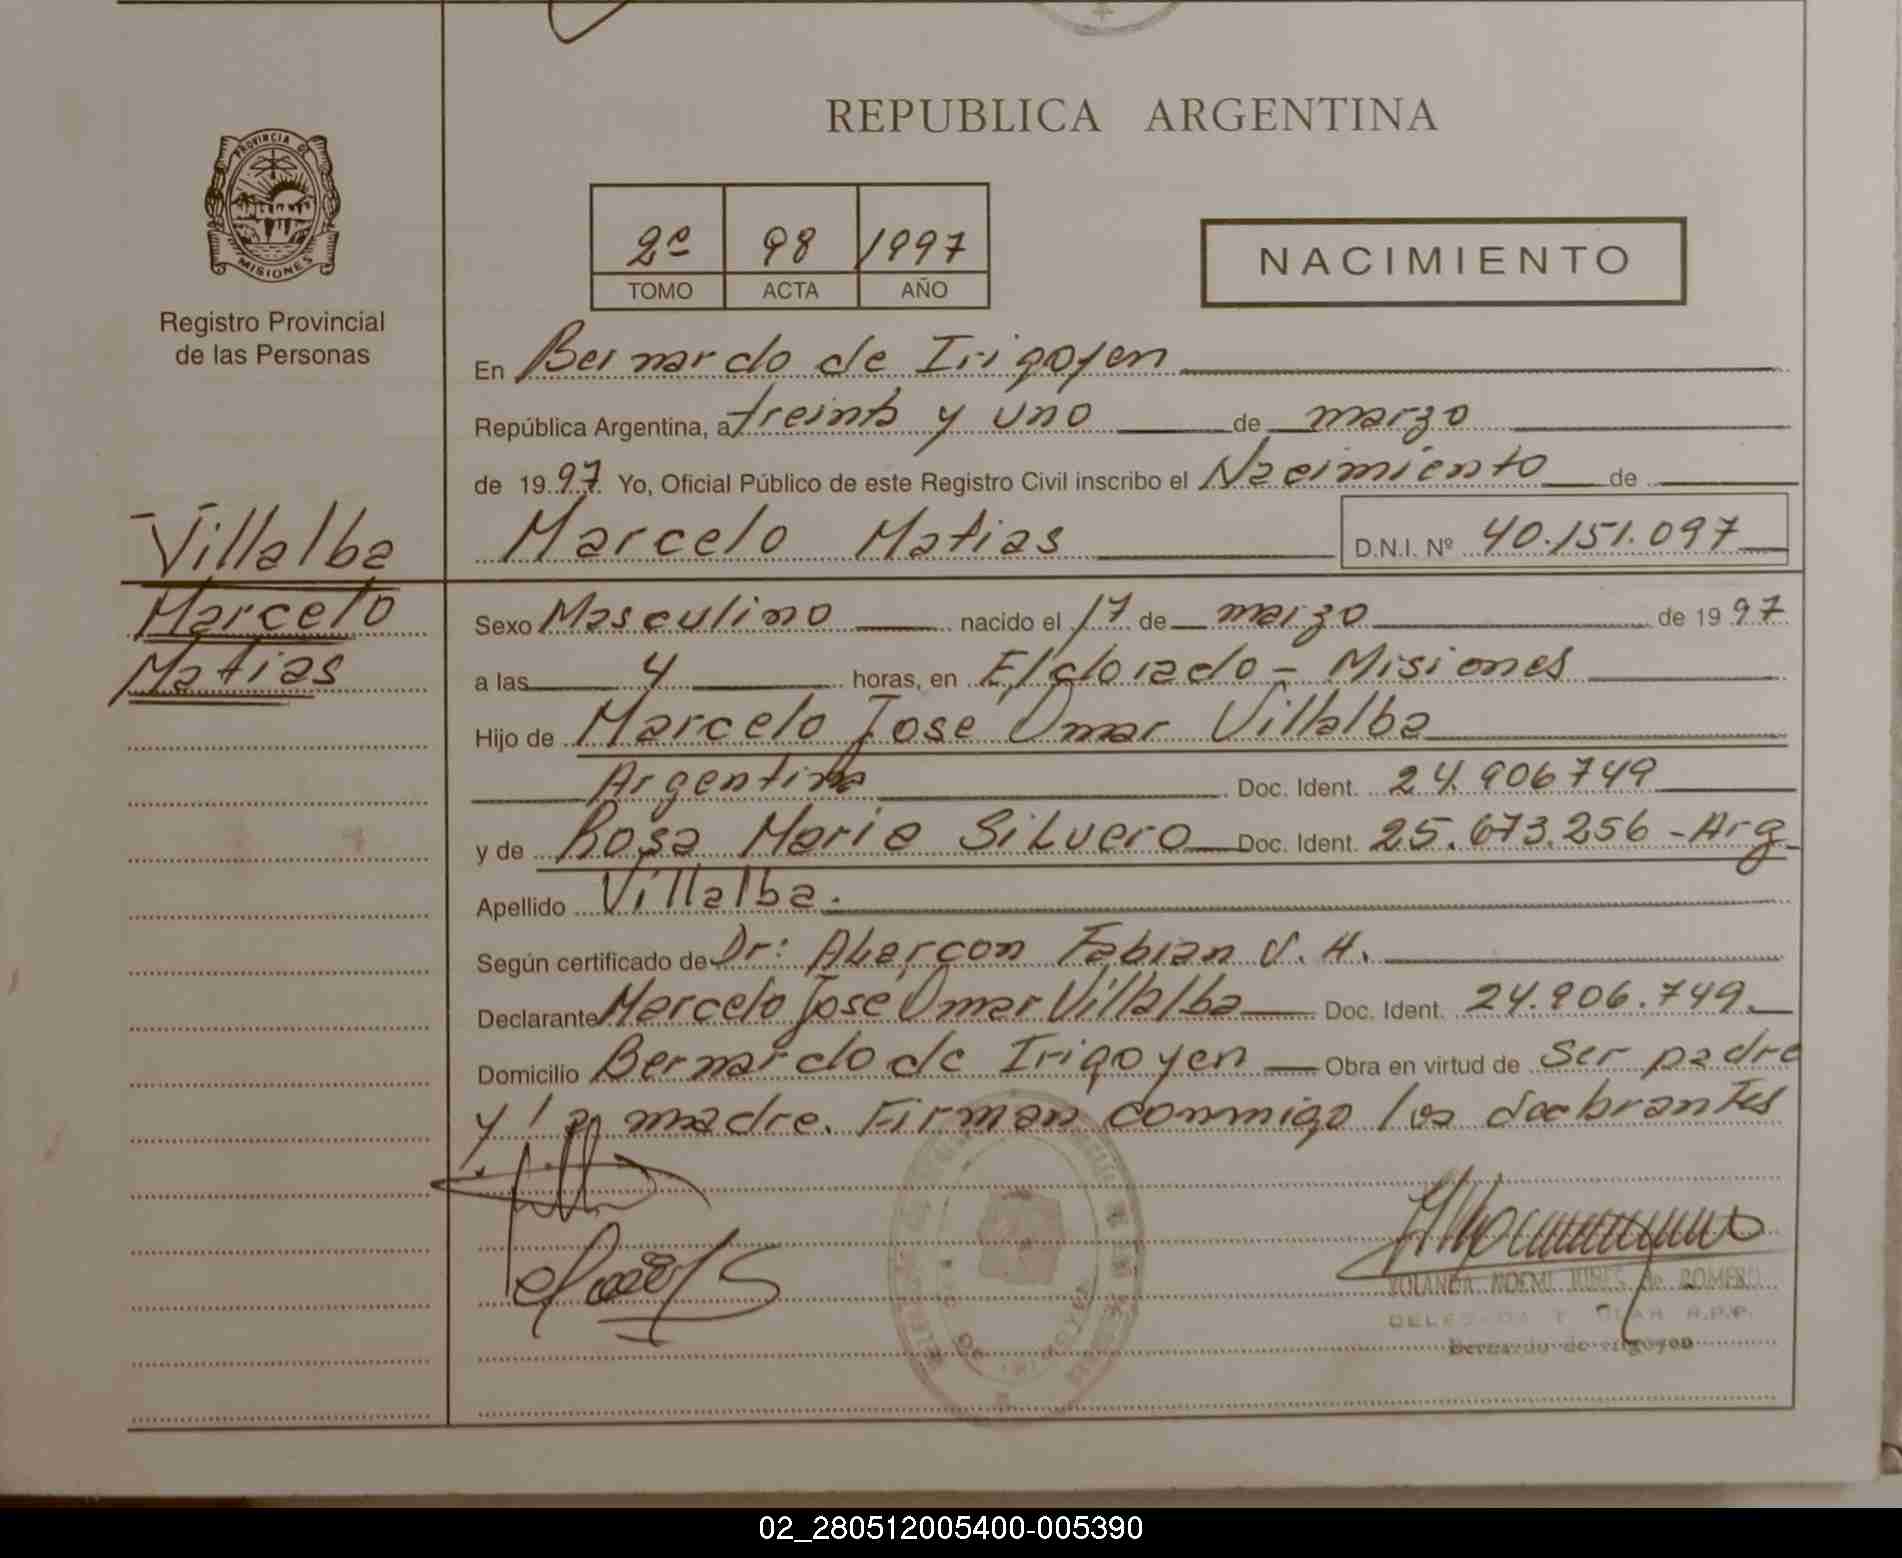 REPUBLICA ARGENTINA
PROVINCIA DE
MISIONES
Registro Provincial
de las Personas
2º 98 1997
TOMO ACTA AÑO
NACIMIENTO
En Bernardo de Irigoyen
República Argentina, a treinta y uno de marzo
de 1997 Yo, Oficial Público de este Registro Civil inscribo el Nacimiento de
Marcelo Matias D.N.I. Nº 40.151.097
Villalba
Marcelo
Matias
Sexo Masculino nacido el 17 de marzo de 1997
a las 4 horas, en Eldorado - Misiones
Hijo de Marcelo Jose Omar Villalba
Argentina Doc. Ident. 24.906749
y de Rosa Maria Silvero Doc. Ident. 25.673.256 - Arg
Apellido Villalba.
Según certificado de Dr: Alarcon Fabian V. H.
Declarante Marcelo José Omar Villalba Doc. Ident. 24.906.749.
Domicilio Bernardo de Irigoyen Obra en virtud de ser padre
y la madre. Firman conmigo los
YOLANDA NOEMI de ROMERO
R.P.P.
Bernardo de Irigoyen
02_280512005400-005390